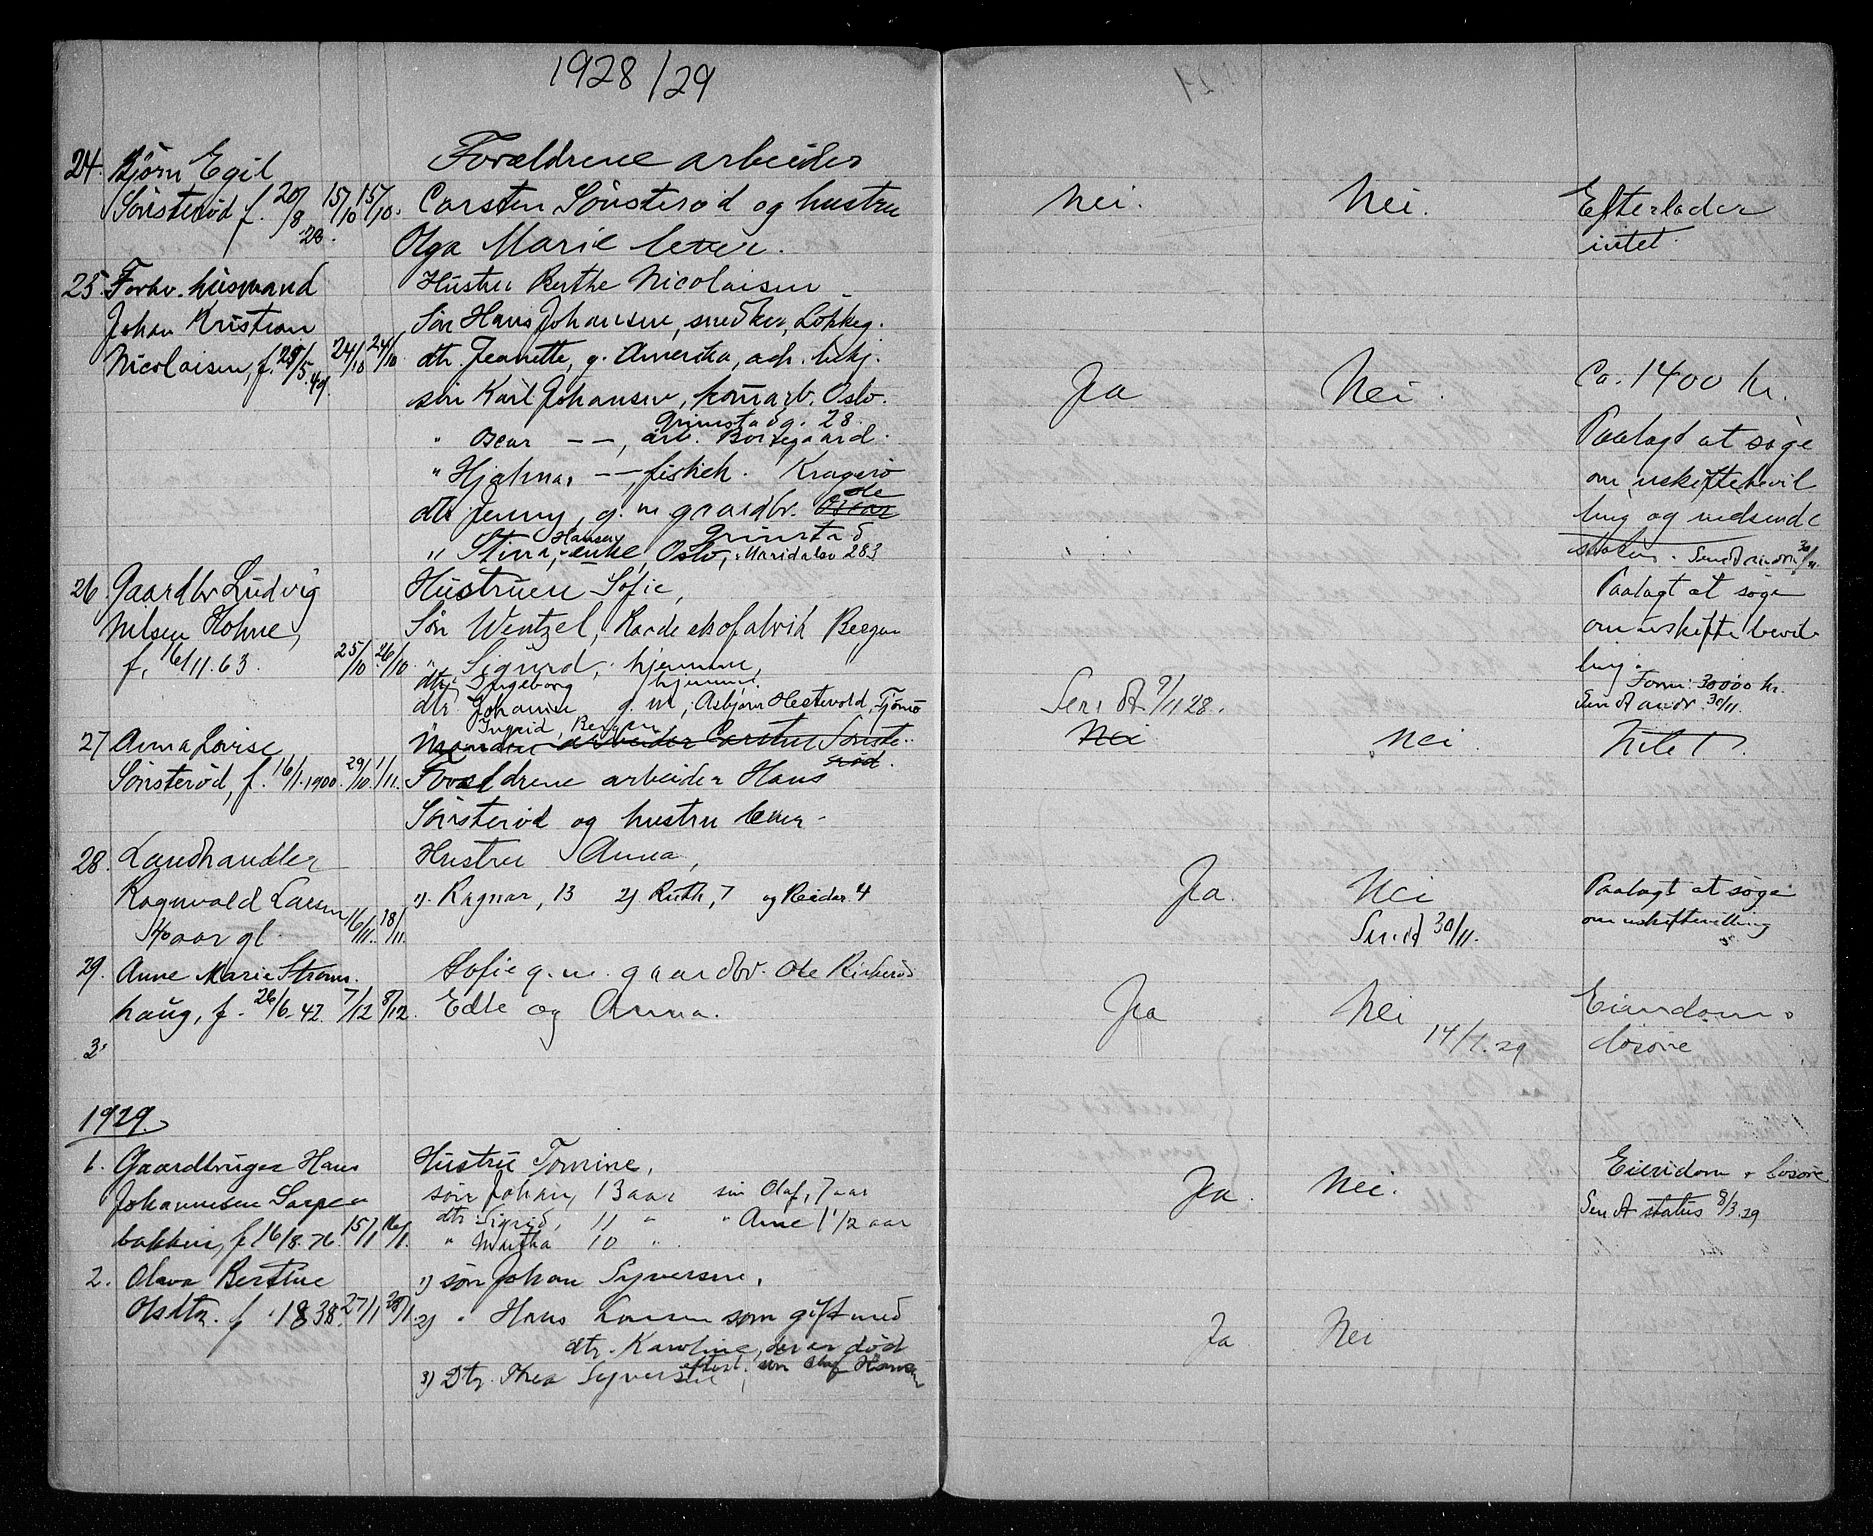 1928/29
24. Bjørn Egil
Sønsterød f. 20/8 28. 15/10 15/10.
Forældrene arbeider
Carsten Sønsterød og hustru
Olga Marie lever.
Nei. Nei. Efterlader
intet.
25. Forhv. husmand
Johan Kristian
Nicolaisen, f. 28/5.49. 24/10 24/10
Hustru Berthe Nicolaisen
Søn Hans Johansen, snedker, Løkkeg.
dtr. Jeanette, g. Amerika, adr. bekj.
søn Karl Johansen, komarb. Oslo.
Grimstadg. 28.
" Oscar — —, arb. Borregaard.
" Hjalmar — —, fiskeh. Kragerø
dtr. Jenny, g. m gaardbr. Oscar Ole
Grimstad
" Stina Hansen, enke, Oslo, Maridalsv 283
Ja Nei. Ca. 1400 kr.
Paalagt at søge
om uskiftebevil
ling og indsende
skaten. Sendt 30/11.
26. Gaardbr Ludvig
Nilsen Holme,
f. 16/11.63. 25/10 26/10.
Hustruen Sofie,
Søn Wentzel, Rarde skofabrik Bergan
" Sigurd, hjemme,
dtr. Ingeborg hjemme.
dtr. Johanne g. m, Asbjørn Hestevold, Tjømø
Ingrid, Bergan
Sendt 9/11 28.
Paalagt at søge
om uskiftebevil
ling.
Form: 30000 kr.
Sendt 30/11.
27 Anna Lovise
Sønsterød, f. 16/1.1900. 29/10 1/11.
Manden arbeider Carsten Sønste-
rød.
Forældrene arbeider Hans
Sønsterød og hustru lever.
Nei Nei. Intet.
28. Landhandler
Ragnvald Larsen 16/11. 18/11
40 aar gl.
Hustru Anna,
1). Ragnar, 13 2) Ruth, 7 og Reidar 4
Ja. Nei
Sendt 30/11.
Paalagt at søge
om uskiftevilling
29. Anne Marie Strøm-
haug, f. 26/6.42. 7/12 8/12.
Sofie g. m. gaardbr. Ole Rirkerød
Edle og Anna.
Ja Nei
14/1.29
Eiendom o
løsøre
3.
1929.
1. Gaardbruger Hans
Johannesen Sarpe
bakken, f 16/8.76. 15/1 16/1.
Hustru Tomine,
søn Johan, 13 aar søn Olaf, 7 aar
dtr. Sigrid, 11 " " Arne 1 1/2 aar
" Martha 10 "
Ja. Nei. Eiendom + løsøre
Sendt status 8/3.29
2. Olava Bertine
Olsdtr. f. 1838. 27/1 28/1.
1) søn Johan Syversen,
2) " Hans Larsen som gift med
dtr. Karoline, der er død
efterl. søn Olaf Hansen
3) Dtr. Thea Syversen,
Ja Nei